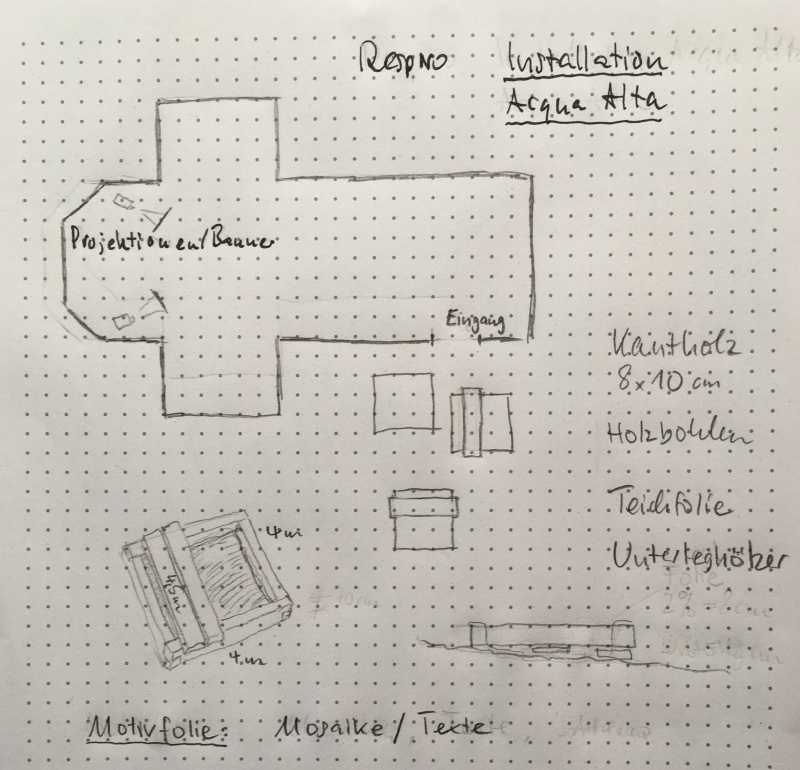 Respiro
Installation
Acqua Alta
Projektionen/Banner
Eingang
Kantholz
8x10 cm
Holzbohlen
Teichfolie
Unterleghölzer
4m
4,5m
4m
Folie
2% = 8 cm
Motivfolie: Mosaike / Texte